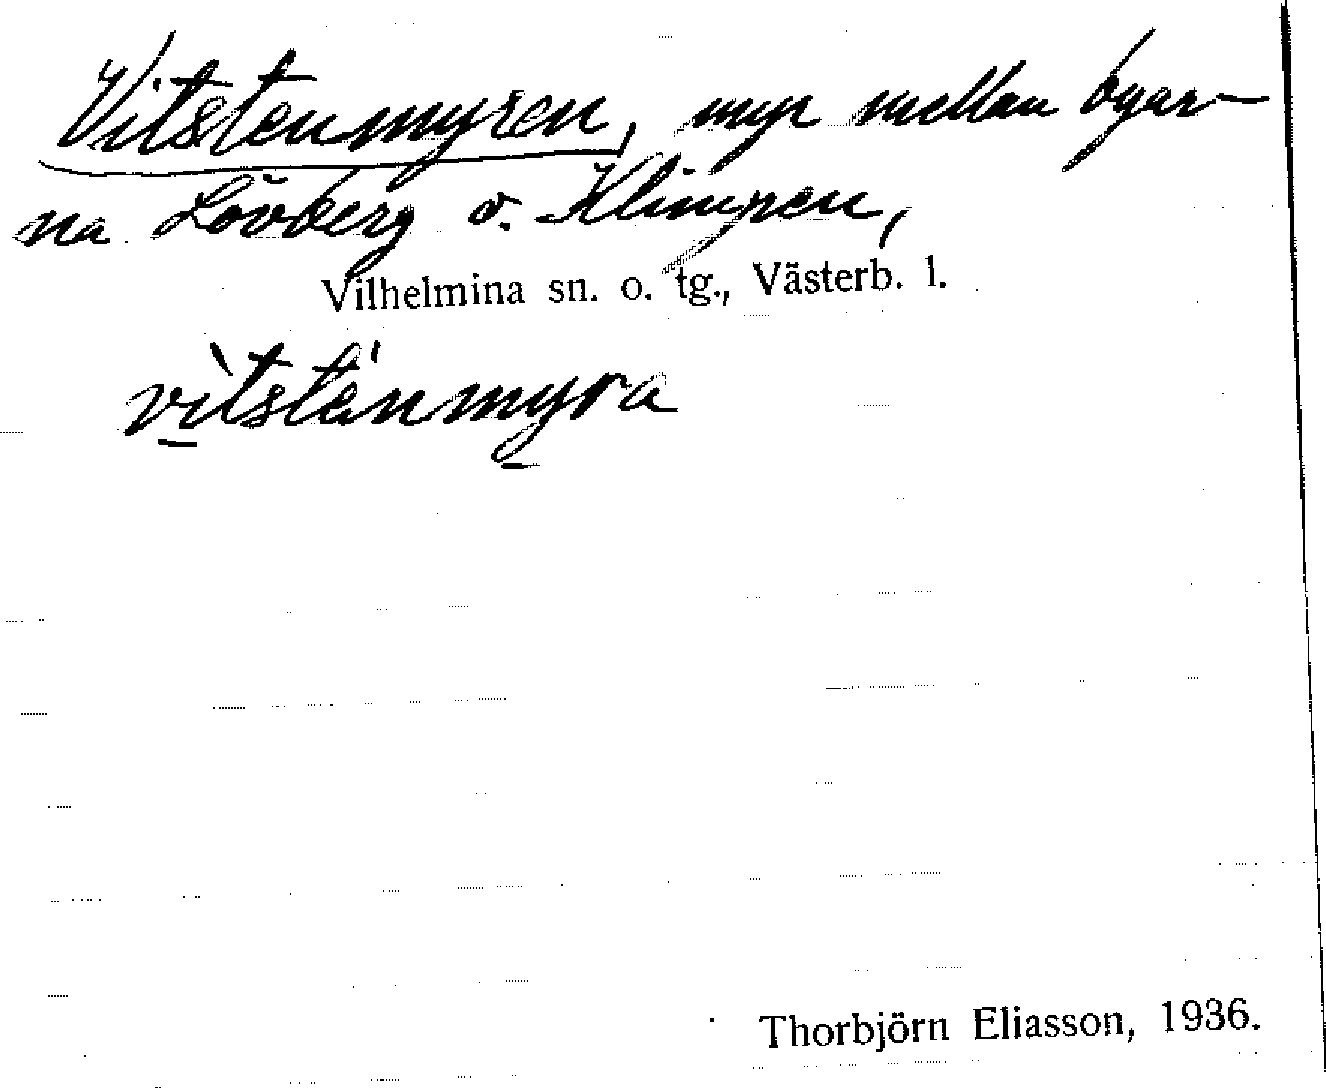 Vitstenmyren, myr mellan byar-
na Lövberg o. Klimpen,
Vilhelmina sn. o. tg., Västerb. l.
vìtsténmyra
Thorbjörn Eliasson, 1936.